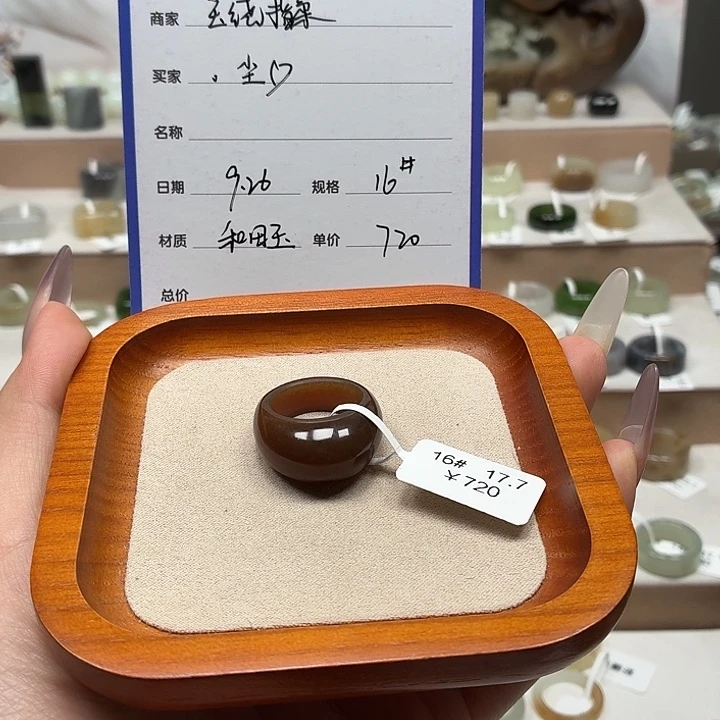 商家 玉纯指渠
买家 。尘♡
名称
日期 9.26 规格 16#
材质 和田玉 单价 720
总价
16# 17.7
￥720